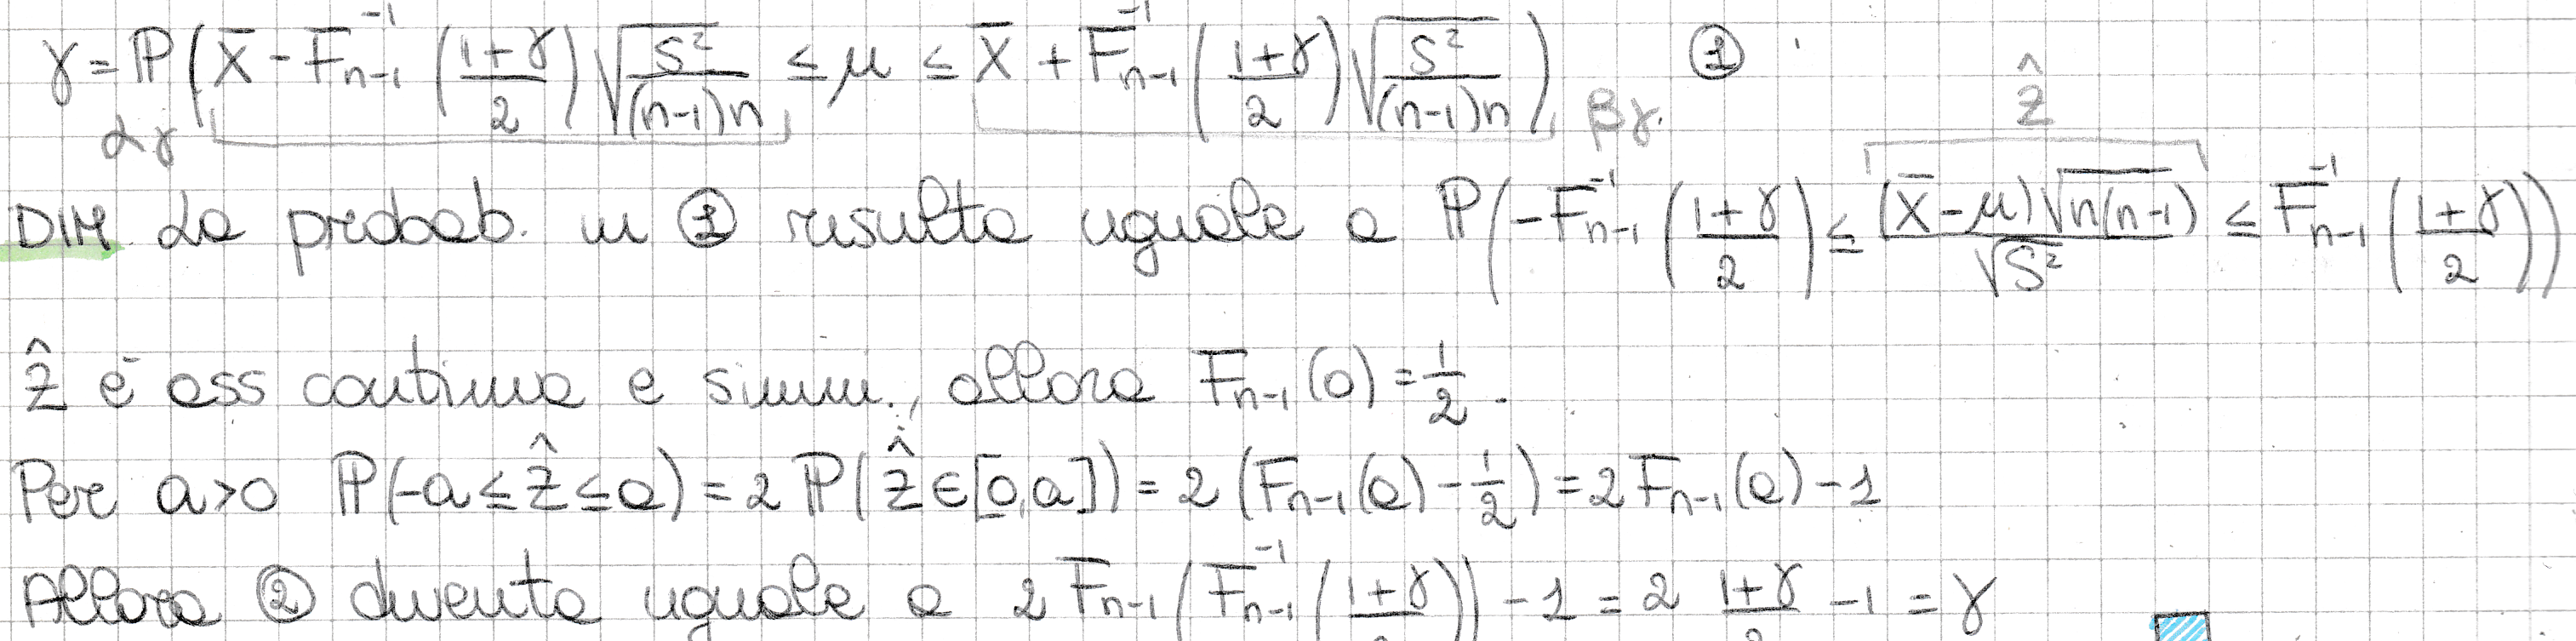 γ = ℙ( X̄ - F⁻¹ₙ₋₁ ((1+γ)/2) √(S²/((n-1)n)) ≤ μ ≤ X̄ + F⁻¹ₙ₋₁ ((1+γ)/2) √(S²/((n-1)n)) ) ①
αγ βγ. Ẑ
DIM La probab. in ① risulta uguale a ℙ( -F⁻¹ₙ₋₁ ((1+γ)/2) ≤ (X̄-μ)√(n(n-1))/√S² ≤ F⁻¹ₙ₋₁ ((1+γ)/2) )
Ẑ è ass continua e simm., allora Fₙ₋₁(0) = 1/2.
Per a>0 ℙ(-a ≤ Ẑ ≤ a) = 2 ℙ(Ẑ ∈ [0,a]) = 2 (Fₙ₋₁(a) - 1/2) = 2 Fₙ₋₁(a) - 1
Allora ② diventa uguale a 2 Fₙ₋₁(F⁻¹ₙ₋₁((1+γ)/2)) - 1 = 2 (1+γ)/2 - 1 = γ